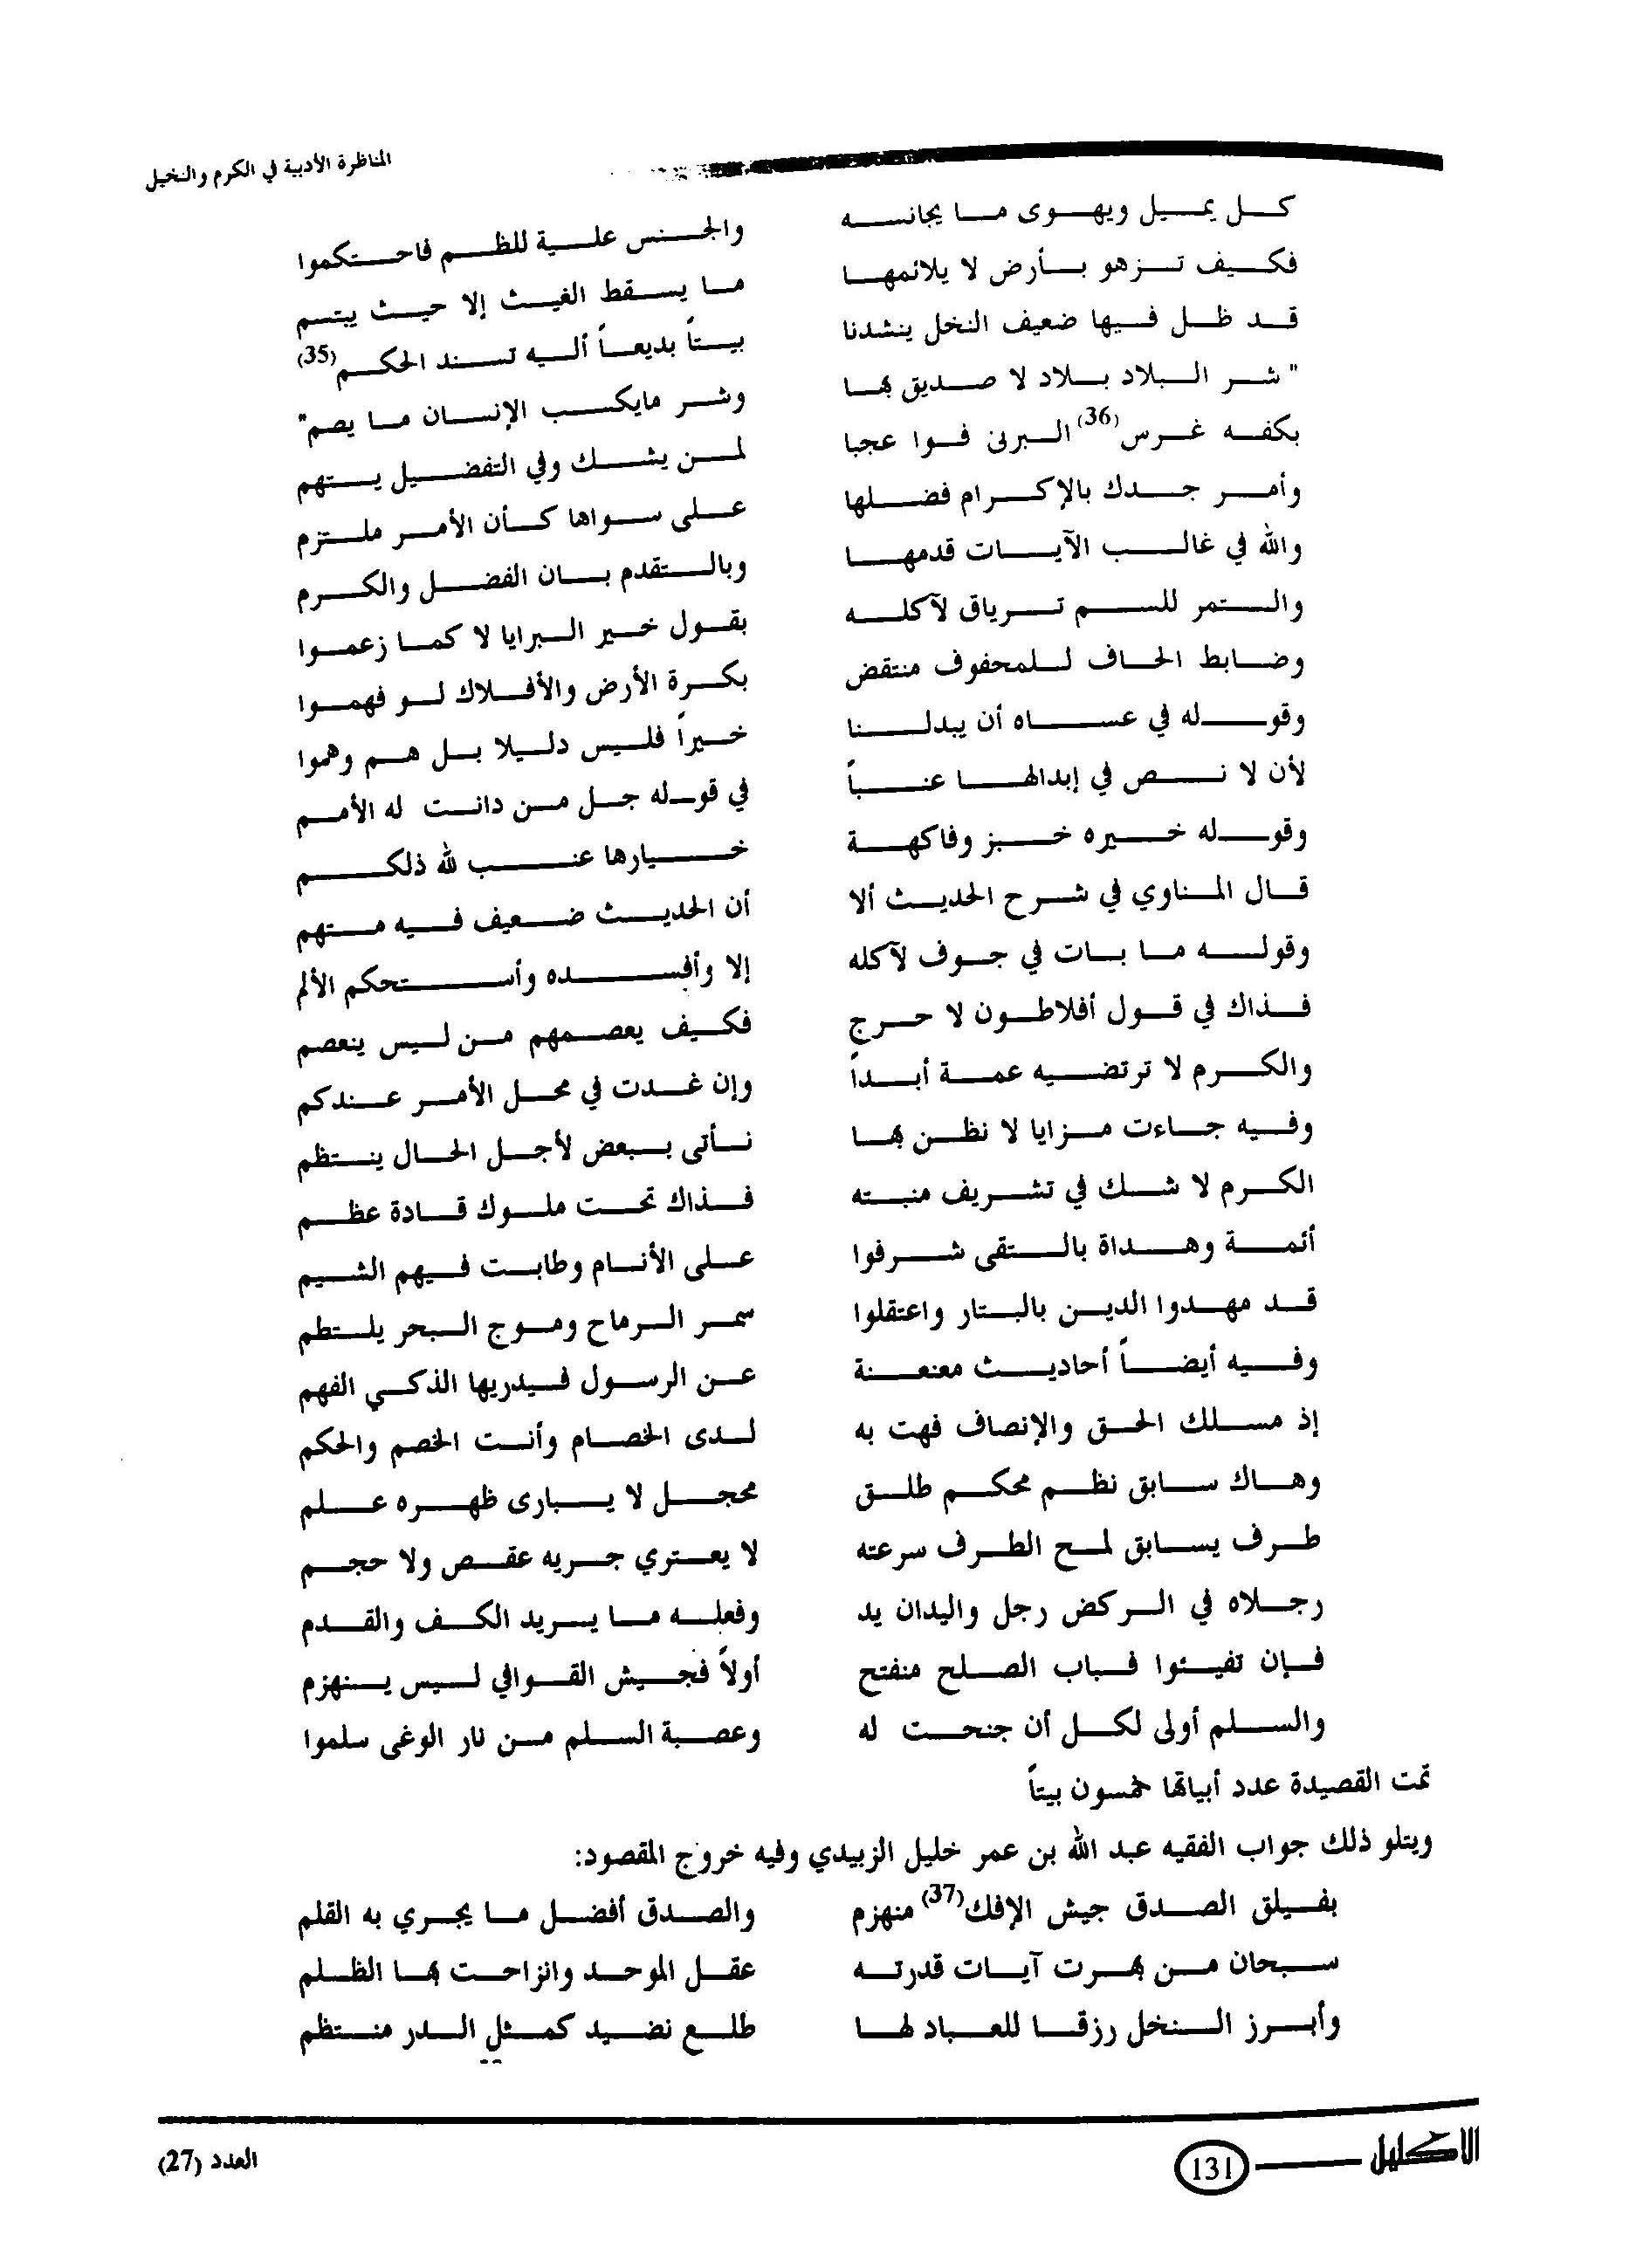 المناظرة الأدبية في الكرم والنخيل
كل يميل ويهوى ما يجانسه والجنس علية للظم فاحتكموا
فكيف تزهو بأرض لا يلائمها ما يسقط الغيث إلا حيث يبتسم
قد ظل فيها ضعيف النخل ينشدنا بيتاً بديعاً أليه تسند الحكم(35)
" شر البلاد بلاد لا صديق بها وشر مايكسب الإنسان ما يصم"
بكفه غرس(36) البرنى فوا عجبا لمن يشك وفي التفضيل يتهم
وأمر جدك بالإكرام فضلها على سواها كأن الأمر ملتزم
والله في غالب الآيات قدمها وبالتقدم بان الفضل والكرم
والتمر للسم ترياق لآكله بقول خير البرايا لا كما زعموا
وضابط الحاف للمحفوف منتقض بكرة الأرض والأفلاك لو فهموا
وقوله في عساه أن يبدلنا خيراً فليس دليلا بل هم وهموا
لأن لا نص في إبدالها عنباً في قوله جل من دانت له الأمم
وقوله خيره خبز وفاكهة خيارها عنب لله ذلكم
قال المناوي في شرح الحديث ألا أن الحديث ضعيف فيه متهم
وقوله ما بات في جوف لآكله إلا وأفسده وأستحكم الألم
فذاك في قول أفلاطون لا حرج فكيف يعصمهم من ليس ينعصم
والكرم لا ترتضيه عمة أبداً وإن غدت في محل الأمر عندكم
وفيه جاءت مزايا لا نظن بها نأتى ببعض لأجل الحال ينتظم
الكرم لا شك في تشريف منبته فذاك تحت ملوك قادة عظم
أئمة وهداة بالتقى شرفوا على الأنام وطابت فيهم الشيم
قد مهدوا الدين بالبتار واعتقلوا سمر الرماح وموج البحر يلتطم
وفيه أيضاً أحاديث معنعنة عن الرسول فيدريها الذكي الفهم
إذ مسلك الحق والإنصاف فهت به لدى الخصام وأنت الخصم والحكم
وهاك سابق نظم محكم طلق محجل لا يبارى ظهره علم
طرف يسابق لمح الطرف سرعته لا يعتري جريه عقص ولا حجم
رجلاه في الركض رجل واليدان يد وفعله ما يريد الكف والقدم
فإن تفيئوا فباب الصلح منفتح أولاً فجيش القوافي ليس ينهزم
والسلم أولى لكل أن جنحت له وعصبة السلم من نار الوغى سلموا
تمت القصيدة عدد أبياتها خمسون بيتاً
ويتلو ذلك جواب الفقيه عبد الله بن عمر خليل الزبيدي وفيه خروج المقصود:
بفيلق الصدق جيش الإفك(37) منهزم والصدق أفضل ما يجري به القلم
سبحان من بهرت آيات قدرته عقل الموحد وانزاحت بها الظلم
وأبرز النخل رزقا للعباد لها طلع نضيد كمثل الدر منتظم
الاكليل 131 العدد (27)